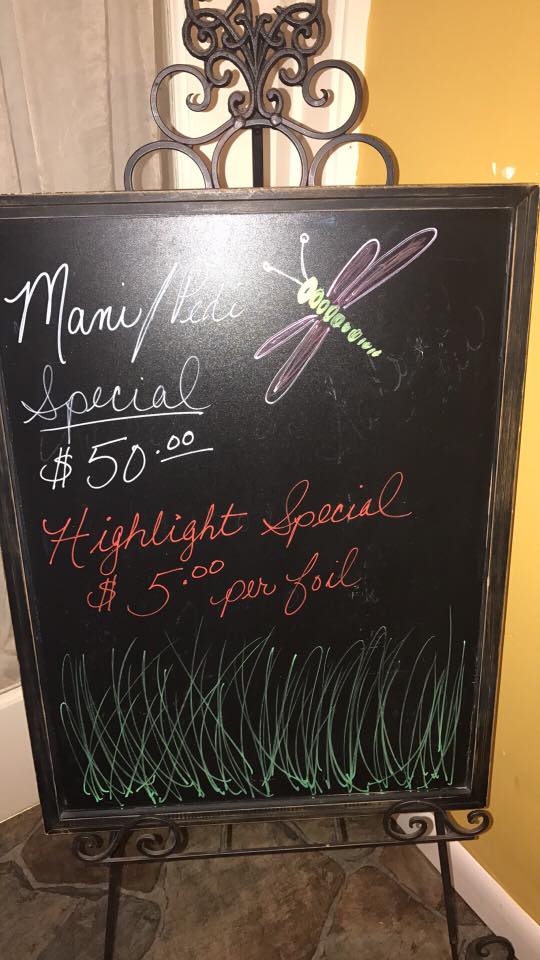 Mani/Pedi
Special
$50.00
Highlight Special
$5.00 per foil